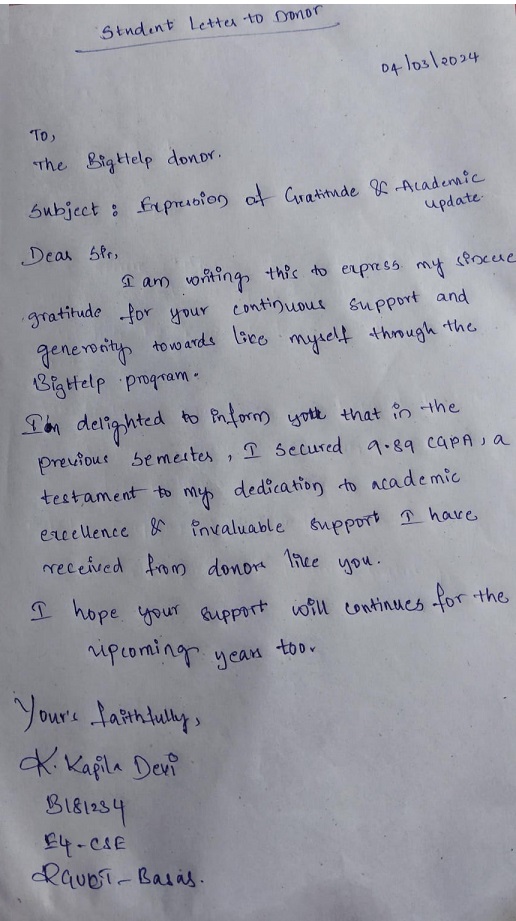 Student Letter to Donor
04/03/2024
To,
The BigHelp donor.
Subject : Expression of Gratitude & Academic
update.
Dear Sir,
I am writing this to express my sincere
gratitude for your continuous support and
generosity towards like myself through the
BigHelp program.
I'm delighted to inform you that in the
previous semester, I secured 9.89 CGPA, a
testament to my dedication to academic
excellence & invaluable support I have
received from donors like you.
I hope your support will continues for the
upcoming years too.
Your's faithfully,
K. Kapila Devi
B181234
E4-CSE
RGUKT-Basar.